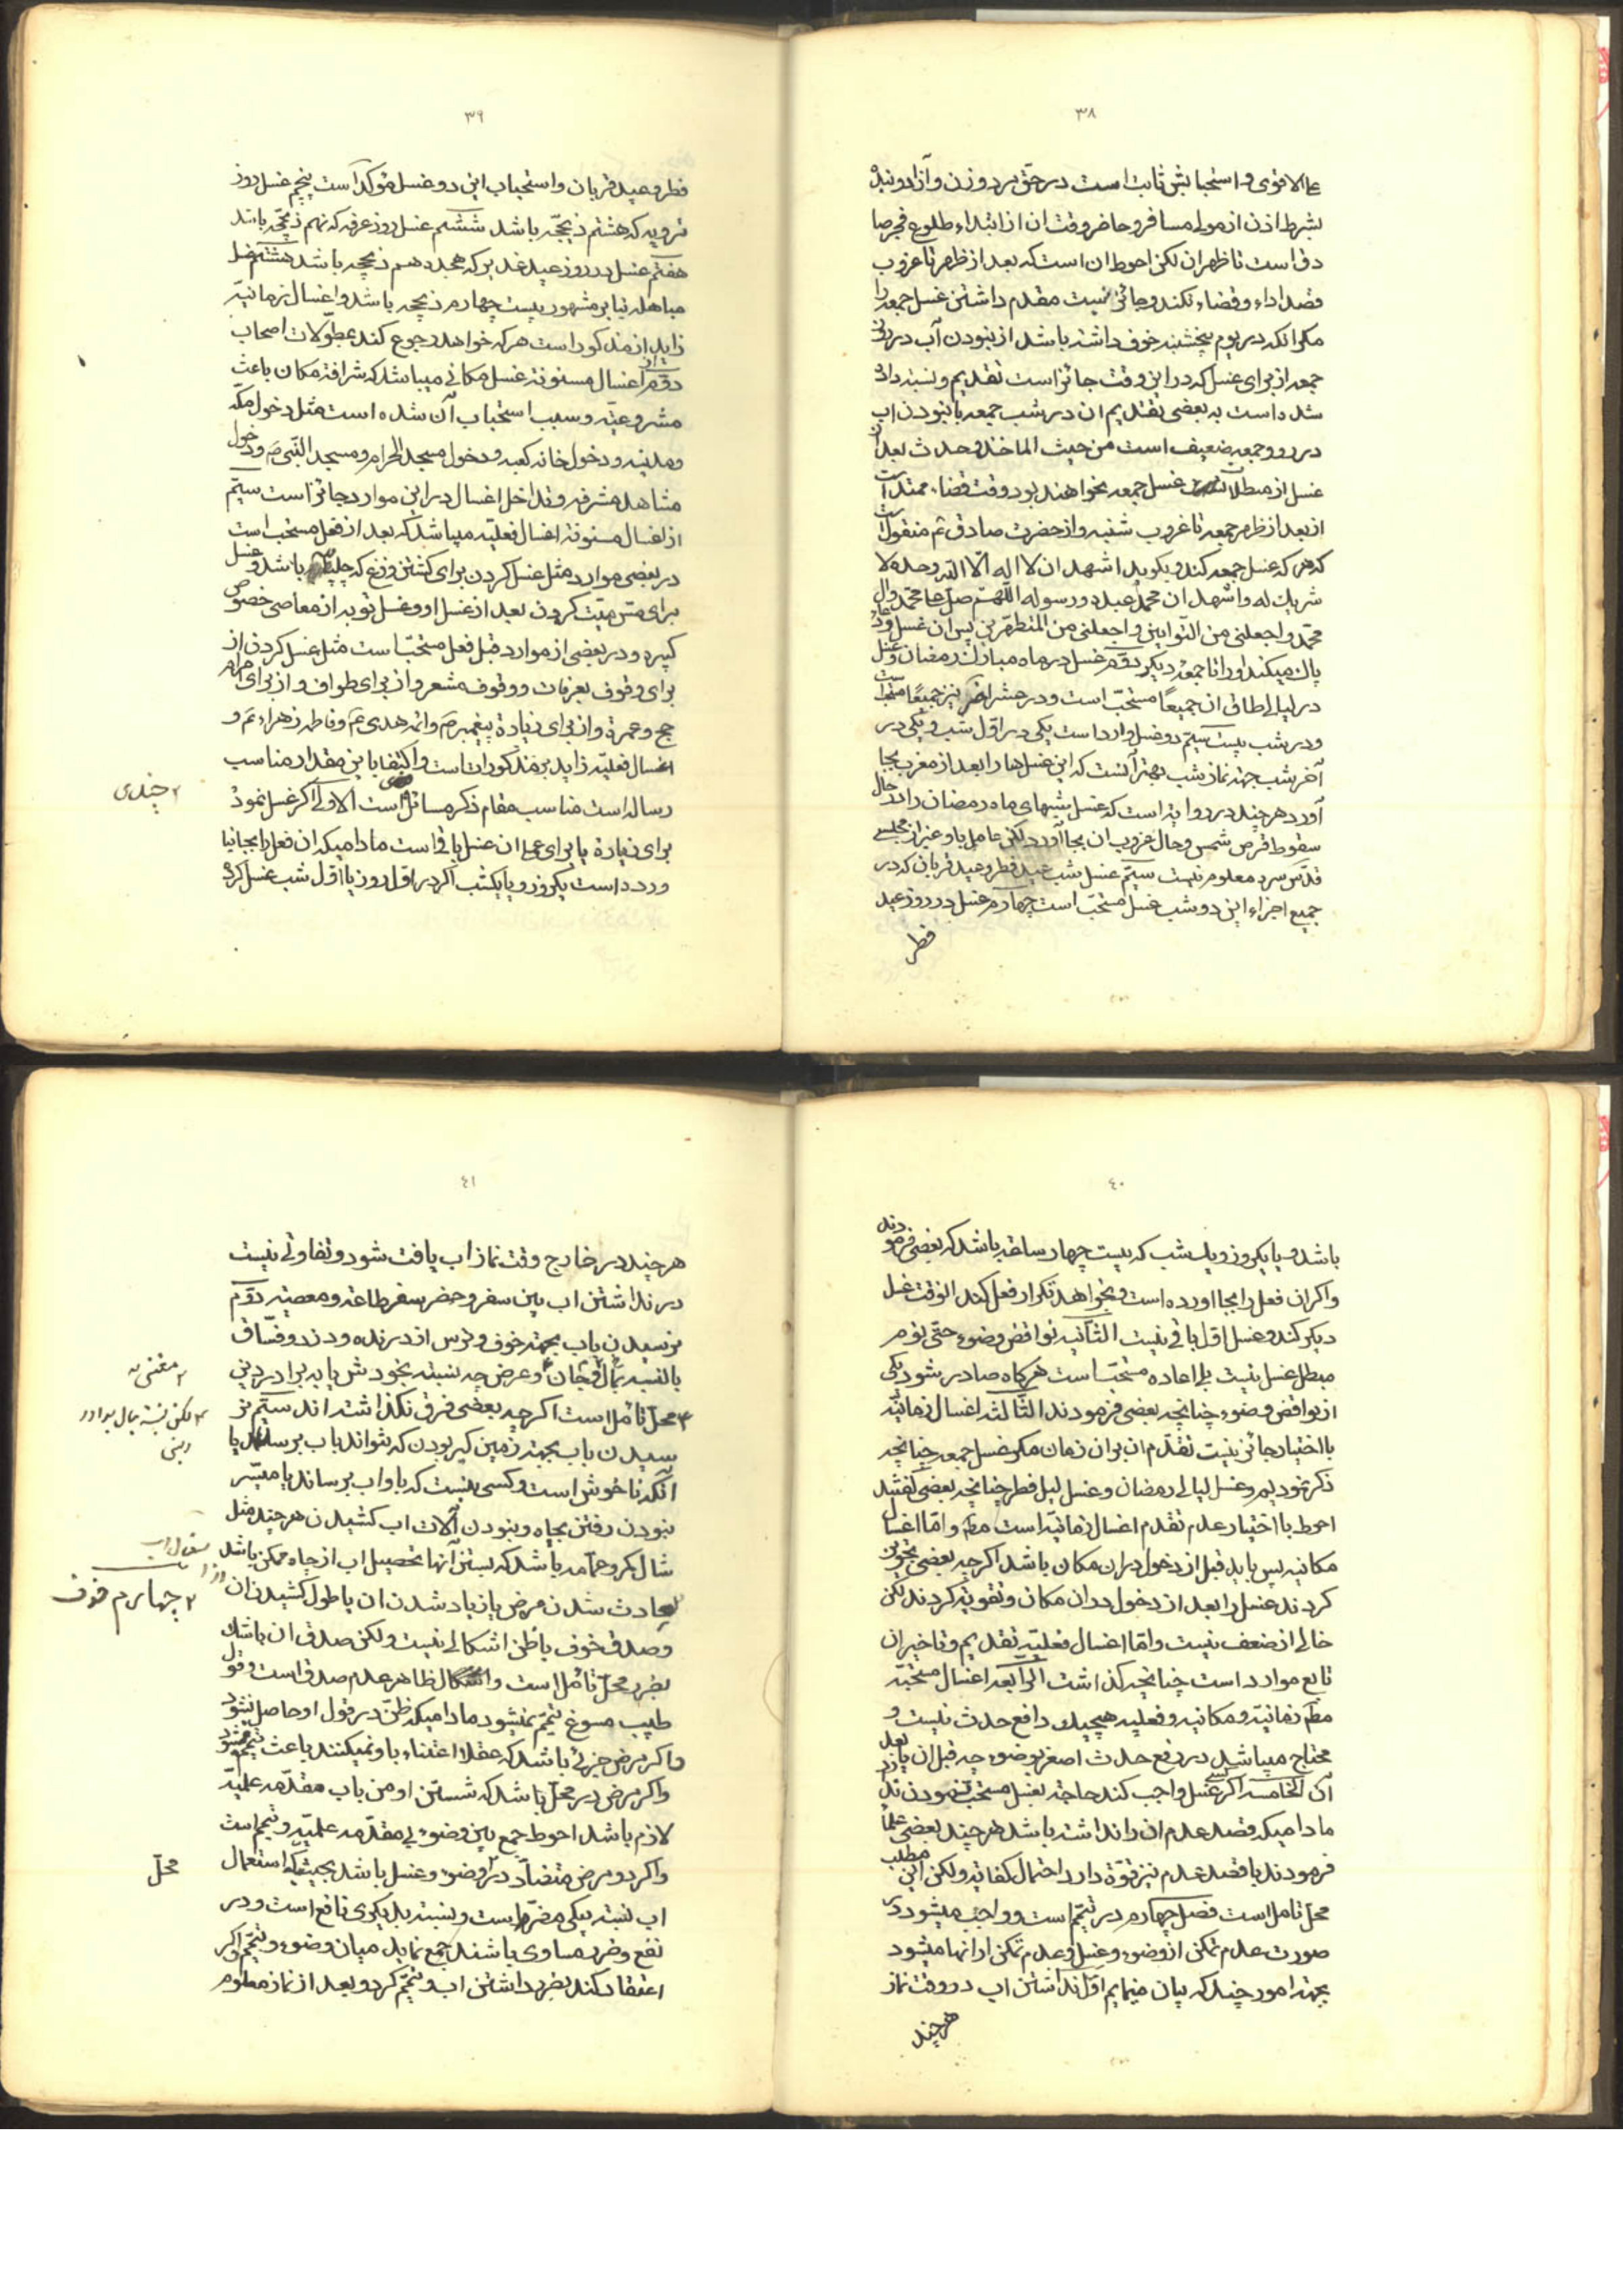 ٣٨
علی الاقوی و استحبابش ثابت است در حق مرد و زن و آزاد و بنده
بشرط اذن از مولی مسافر و حاضر و وقت ان از ابتداء طلوع فجر صا
دق است تا ظهر ان لکن احوط ان است که بعد از ظهر تا غروب
قصد اداء و قضاء نکند و جائز نیست مقدم داشتن غسل جمعه را
مگر انکه در یوم پنجشنبه خوف داشته باشد از نبودن آب در روز
جمعه از برای غسل که در این وقت جائز است تقدیم و نسبت داده
شده است به بعضی تقدیم ان در شب جمعه با نبودن اب
در روز جمعه ضعیف است من حیث الماخذ و حدث بعد از
غسل از مبطلات غسل جمعه نخواهند بود وقت قضاء ممتد است
از بعد از ظهر جمعه تا غروب شنبه و از حضرت صادق ع منقول است
که هر که غسل جمعه کند و بگوید اشهد ان لا اله الّا اللّه وحده لا
شریك له و اشهد ان محمدا عبده و رسوله اللّهمّ صلّ علی محمّد و ال
محمّد و اجعلنی من التّوابین و اجعلنی من المتطهّرین پس ان غسل
پاك میکند او را تا جمعه دیکر دوّم غسل در ماه مبارك رمضان و غسل
در لیالی طاق ان جمیعا مستحبّ است و در عشر اخر نیز جمیعًا مستحبّ است
و در شب بیست سیّم دو غسل وارد است یکی در اوّل شب و یکی در
آخر شب جهة نماز شب بهتر آنست که این غسلها را بعد از مغرب بجا
آورد هر چند در روایة است که غسل شبهای ماه رمضان را در حال
سقوط قرص شمس و حال غروب ان بجا آورد لکن عامل باو غیر از مجلسی
قدّس سره معلوم نیست سیّم غسل شب عید فطر و عید قربان که در
جمیع اجزاء این دو شب غسل مستحبّ است چهارم غسل در روز عید
فطر
٣٩
فطر و عید قربان و استحباب این دو غسل مؤکد است پنجم غسل روز
ترویه که هشتم ذیحجّه باشد ششم غسل روز عرفه که نهم ذیحجّه باشد
هفتم غسل در روز عید غدیر که هجدهم ذیحجه باشد هشتم غسل
مباهله بنابر مشهور بیست چهارم ذیحجه باشد و اغسال زمانیّه
زاید از مذکور است هر که خواهد رجوع کند بمطوّلات اصحاب
دوّم از اغسال مسنونة غسل مکانی میباشد که شرافة مکان باعث
مشروعیّة و سبب استحباب آن شده است مثل دخول مکّه
و مدینه و دخول خانه کعبه و دخول مسجد الحرام و مسجد النّبی ص و دخول
مشاهد مشرفه و تداخل اغسال در این موارد جائز است سیّم
از اغسال مسنونة اغسال فعلیّه میباشد که بعد از فعل مستحب است
در بعضی موارد مثل غسل کردن برای کشتن وزغ که چلپاسه باشد و غسل
برای مسّ میّت کردن بعد از غسل او و غسل توبه از معاصی خصوص
کبیره و در بعضی از موارد قبل فعل مستحبّ است مثل غسل کردن از
برای وقوف بعرفات و وقوف مشعر و از برای طواف و از برای احرام
حج و عمرة و از برای زیارة پیغمبر ص و ائمه هدی ع و فاطمه زهراء ع و
اغسال فعلیّه زاید بر مذکورات است و اکتفا باین مقدار مناسب
رساله است مناسب مقام ذکر مسائل است الاولی اکر غسل نمود
٢ چندی
برای زیارة یا برای عملی ان غسل باقی است مادامیکه ان فعل را بجا نیا
ورده است یکروز و یا یکشب اکر در اوّل روز یا اوّل شب غسل کرده
٤٠
باشد و یا یکروز و یك شب که بیست چهار ساعة باشد که بعضی فرمودند
و اکر ان فعل را بجا اورده است و بخواهد تکرار فعل کند انوقت غسل
دیکر کند و غسل اوّل باقی نیست الثّانیة نواقض وضوء حتّی نوم
مبطل غسل نیست بلی اعاده مستحبّ است هرکاه صادر شود یکی
از نواقض وضوء چنانچه بعضی فرمودند الثّالثة اغسال زمانیّه
با اختیار جائز نیست تقدّم ان بر ان زمان مکر غسل جمعه چنانچه
ذکر نمودیم و غسل لیالی رمضان و غسل لیل فطر چنانچه بعضی کفتند
احوط با اختیار عدم تقدم اغسال زمانیّه است مطم و امّا اغسال
مکانیه پس باید قبل از دخول در ان مکان باشد اکر چه بعضی تجویز
کردند غسل را بعد از دخول در ان مکان و تقویة کردند لکن
خالی از ضعف نیست و امّا اغسال فعلیّه تقدیم و تاخیر ان
تابع موارد است چنانچه کذاشت الرّابعة اغسال مستحبّه
مطم زمانیّه و مکانیه و فعلیه هیچیك دافع حدث نیست و
محتاج میباشد در رفع حدث اصغر بوضوء چه قبل ان یا بعد از
آن الخامسة اکر کسی غسل واجب کند حاجة بغسل مستحب نمودن ندارد
مادامیکه قصد عدم ان را نداشته باشد هر چند بعضی علما
فرمودند با قصد عدم نیز قوّة دارد احتمال کفایة ولکن این مطلب
محلّ تامل است فصل چهارم در تیمّم است و واجب میشود در
صورت عدم تمکن از وضوء و غسل و عدم تمکن از انها میشود
بجهة امور چند که بیان مینمایم اوّل نداشتن اب در وقت نماز
هر چند
٤١
هر چند در خارج وقت نماز اب یافت شود و تفاوتی نیست
در نداشتن اب بین سفر و حضر سفر طاعة و معصیة دوّم
نرسیدن باب بجهة خوف و ترس از درنده و دزد و فسّاق
بالنسبه بمال و جان و عرض چه نسبة بخودش یا به برادر دینی
٢ مغنی به
٣ محلّ تأمل است اکر چه بعضی فرق نکذاشته اند سیّم نر
٣ لکن نسبة بمال برادر دینی
سیدن باب بجهة زمین کیر بودن که نتواند باب برسد یا
آنکه ناخوش است و کسی نیست که باو اب برساند یا میسّر
نبودن رفتن بچاه و نبودن آلات اب کشیدن هر چند مثل
شال کمر و عمّامه باشد که ببستن آنها تحصیل اب از چاه ممکن باشد
حادث شدن مرض یا زیاد شدن ان یا طول کشیدن ان
٢ چهارم خوف
و صدق خوف با ظن اشکالی نیست ولکن صدق ان با شك
بضرر محلّ تأمل است و ظاهر عدم صدق است و قول
طبیب مسوغ تیمّم نمیشود مادامیکه ظنّ در قول او حاصل نشود
و اکر مرض جزئی باشد که عقلا اعتناء باو نمیکنند باعث تیمّم نمیشود
و اکر مرض در محلّ باشد که شستن او من باب مقدّمه علمیّه
لازم باشد احوط جمع بین وضوء بی مقدّمه علمیّه و تیمم است
و اکر دو مرض متضادّ در وضوء و غسل باشد بحیثیکه استعمال
محلّ
اب نسبة بیکی مضرّ است و نسبة بدیکری نافع است و در
نفع و ضرر مساوی باشند جمع نماید میان وضوء و تیمّم و اکر
اعتقاد کند بضرر داشتن اب و تیمّم کرد و بعد از نماز معلوم